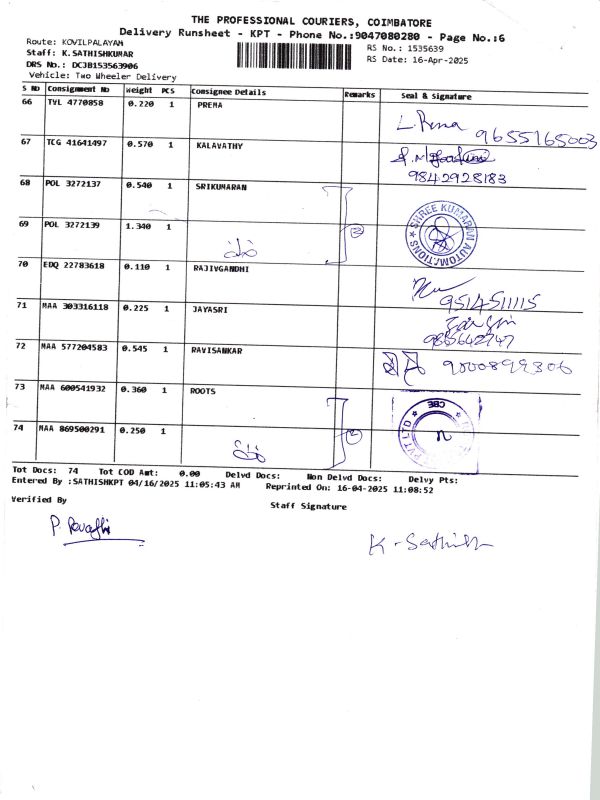 THE PROFESSIONAL COURIERS, COIMBATORE
Delivery Runsheet - KPT - Phone No.:9047080280 - Page No.:6
Route: KOVILPALAYAM
Staff: K.SATHISHKUMAR
RS No.: 1535639
DRS No.: DCJB153563906
RS Date: 16-Apr-2025
Vehicle: Two Wheeler Delivery
S No Consignment No Weight PCS Consignee Details Remarks Seal & Signature
66 TYL 4770858 0.220 1 PREMA
L. Prema 9655765003
67 TCG 41641497 0.570 1 KALAVATHY
9842928183
68 POL 3272137 0.540 1 SRIKUMARAN
SHREE KUMARAN AUTOMATIONS
69 POL 3272139 1.340 1
70 EDQ 22783618 0.110 1 RAJIVGANDHI
9514511115
71 MAA 303316118 0.225 1 JAYASRI
9865642747
72 MAA 577204583 0.545 1 RAVISANKAR
9000899306
73 MAA 600541932 0.360 1 ROOTS
CBE
PVT LTD
74 MAA 869500291 0.250 1
Tot Docs: 74 Tot COD Amt: 0.00 Delvd Docs: Non Delvd Docs: Delvy Pts:
Entered By :SATHISHKPT 04/16/2025 11:05:43 AM Reprinted On: 16-04-2025 11:08:52
Verified By
Staff Signature
P. Revathi
K-Sathish